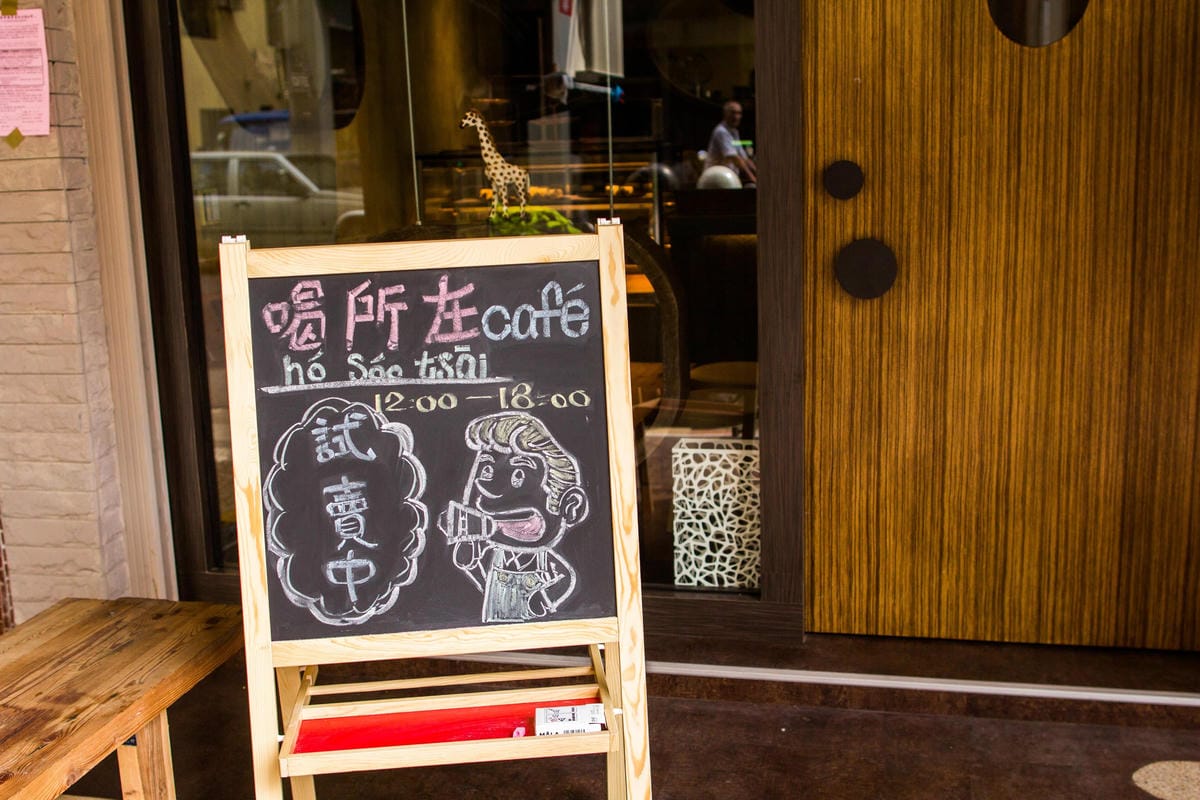 喝所在café
hó sóo tsāi
12:00－18:00
試
賣
中
MÅLA